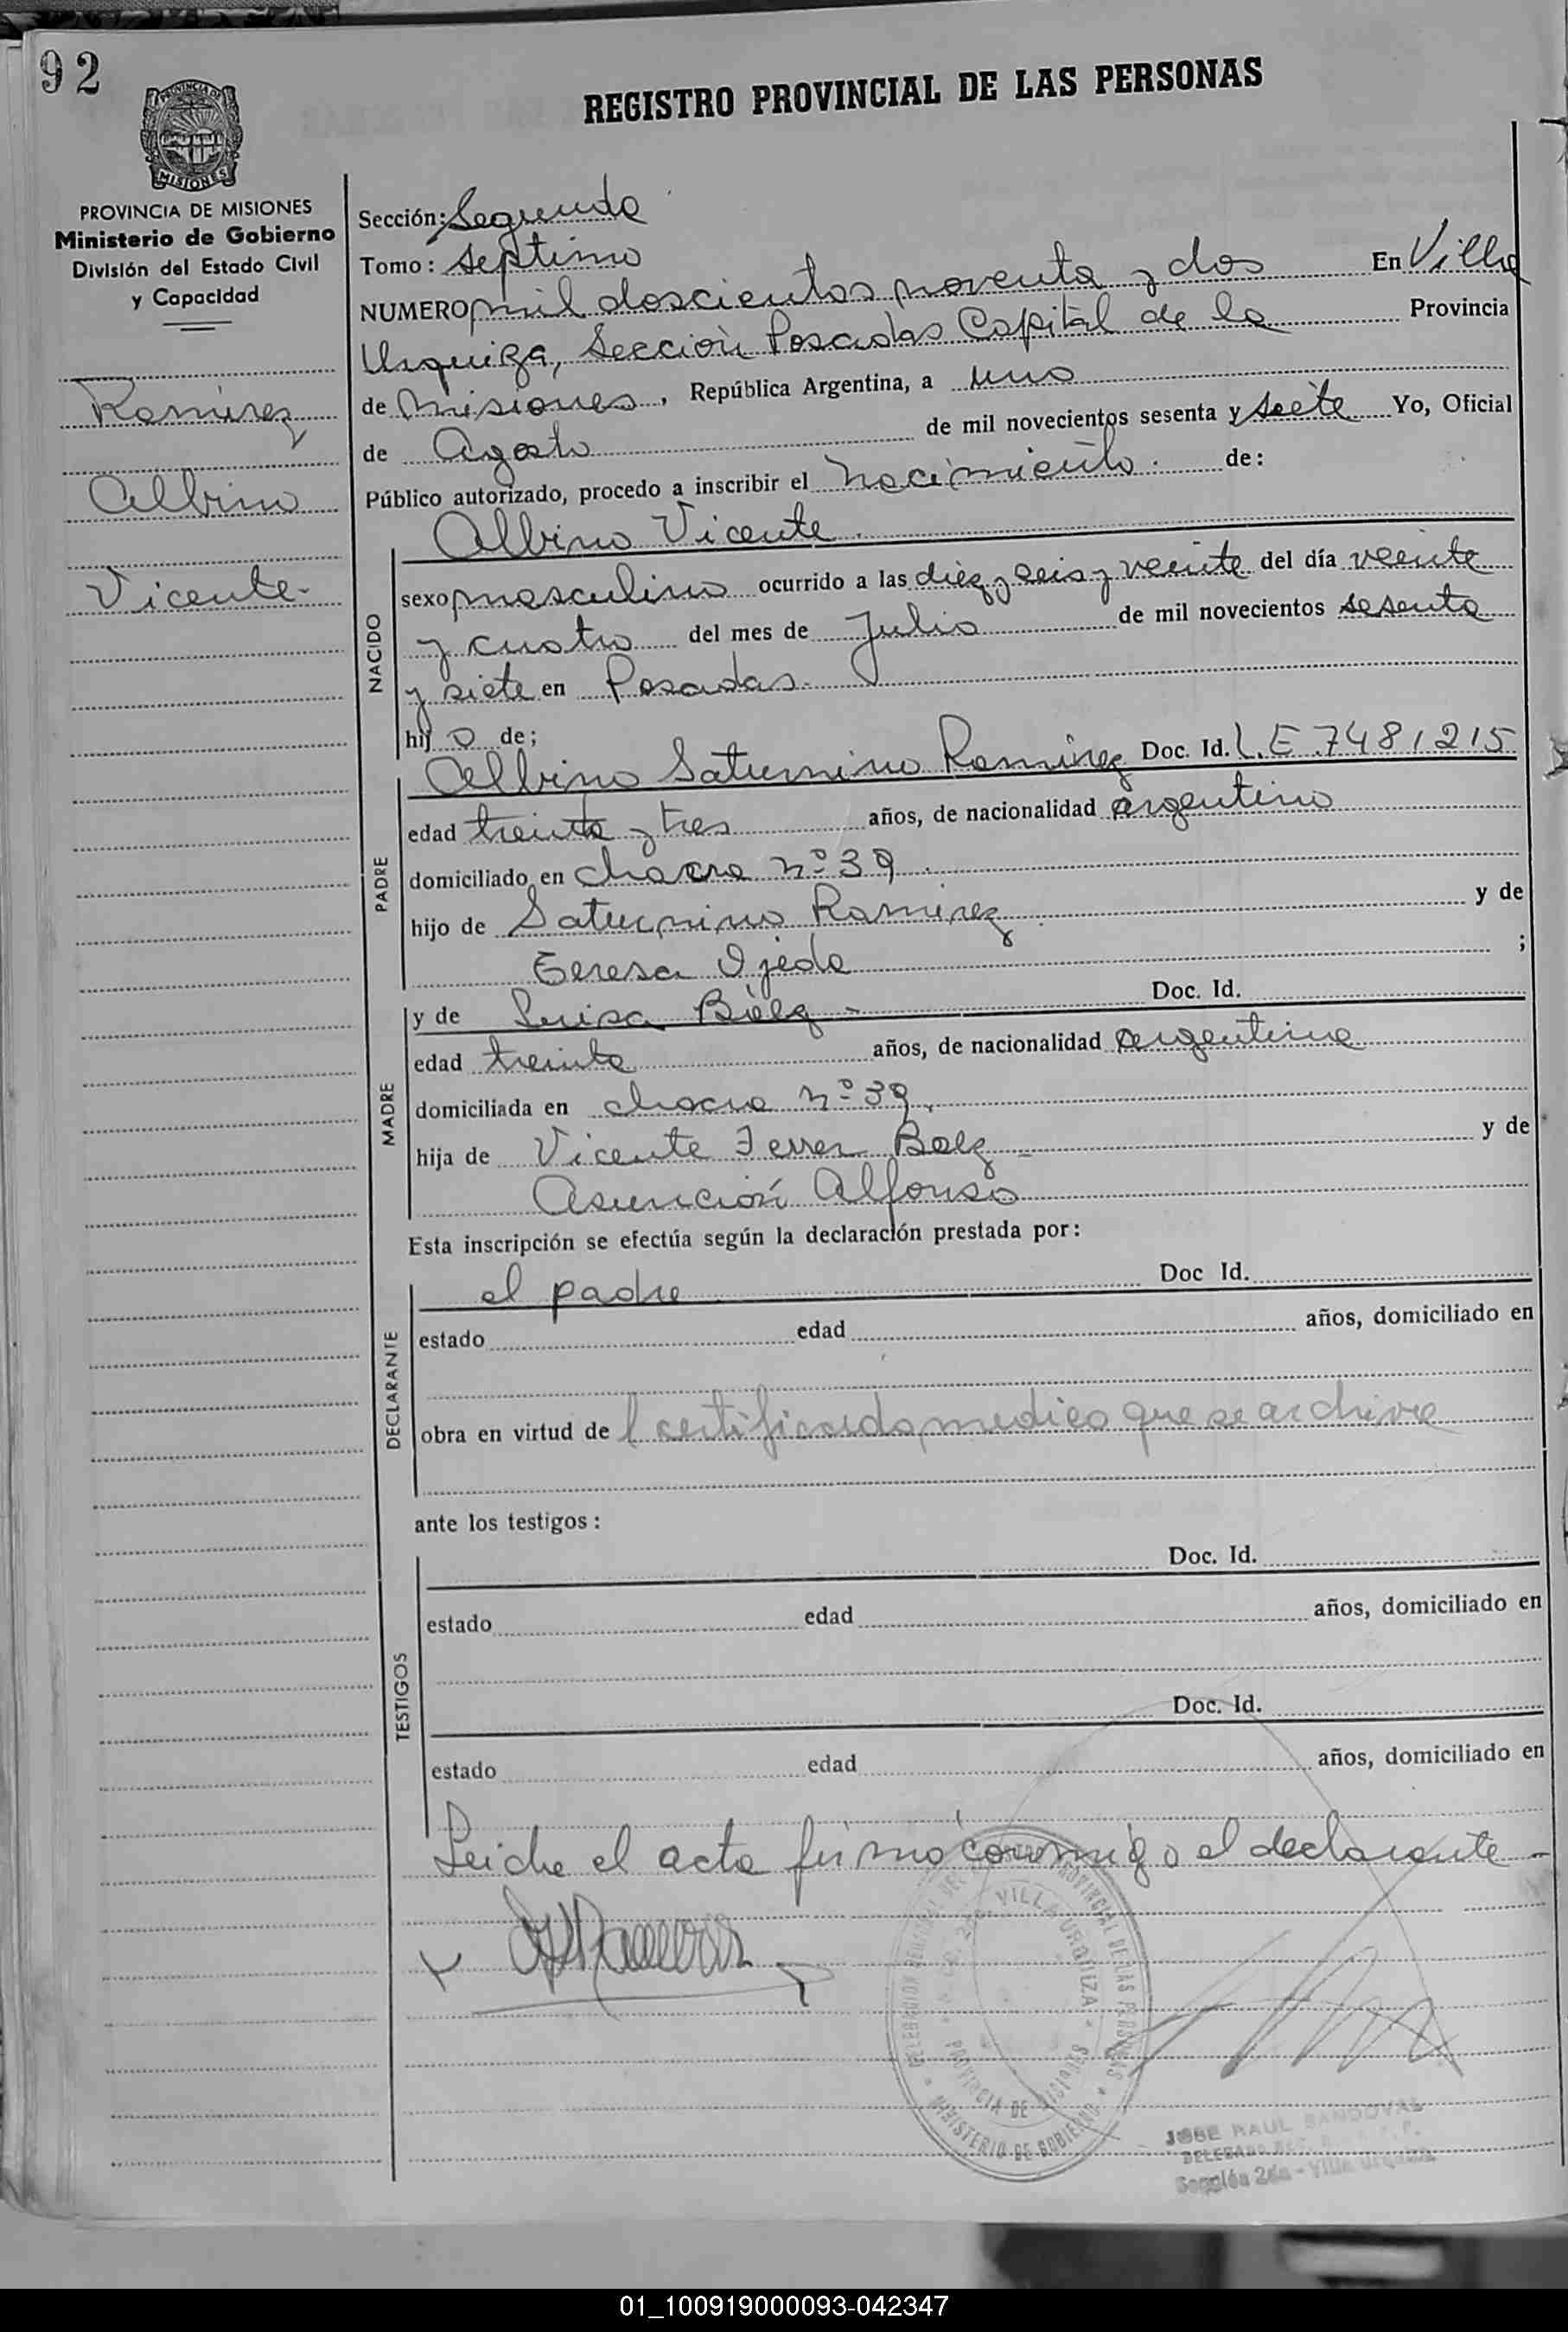 92
REGISTRO PROVINCIAL DE LAS PERSONAS
PROVINCIA DE MISIONES
MISIONES
PROVINCIA DE MISIONES
Ministerio de Gobierno
División del Estado Civil
y Capacidad
Ramirez
Albino
Vicente-
Sección: Segunda
Tomo: septimo
NUMERO mil doscientos noventa y dos En Villa
Urquiza, Sección Posadas Capital de la Provincia
de Misiones, República Argentina, a uno
de Agosto de mil novecientos sesenta y siete Yo, Oficial
Público autorizado, procedo a inscribir el nacimiento. de:
Albino Vicente.
NACIDO
sexo masculino ocurrido a las diez y seis y veinte del día veinte
y cuatro del mes de Julio de mil novecientos sesenta
y siete en Posadas.
hij o de;
PADRE
Albino Saturnino Ramirez Doc. Id. L.E 7481215
edad treinta y tres años, de nacionalidad argentino
domiciliado en chacra nº 39.
hijo de Saturnino Ramirez y de
Teresa Ojeda ;
MADRE
y de Luisa Báez - Doc. Id.
edad treinta años, de nacionalidad argentina
domiciliada en chacra nº 39.
hija de Vicente Ferrer Baez - y de
Asunción Alfonso
Esta inscripción se efectúa según la declaración prestada por:
DECLARANTE
el padre Doc Id.
estado edad años, domiciliado en
obra en virtud de l certificado medico que se archiva
ante los testigos:
TESTIGOS
Doc. Id.
estado edad años, domiciliado en
Doc. Id.
estado edad años, domiciliado en
Leida el acta firmó conmigo el declarante -
VILLA URQUIZA
PROVINCIA DE MISIONES
MINISTERIO DE GOBIERNO
JOSE RAUL SANDOVAL
Sección 2da - Villa Urquiza
01_100919000093-042347